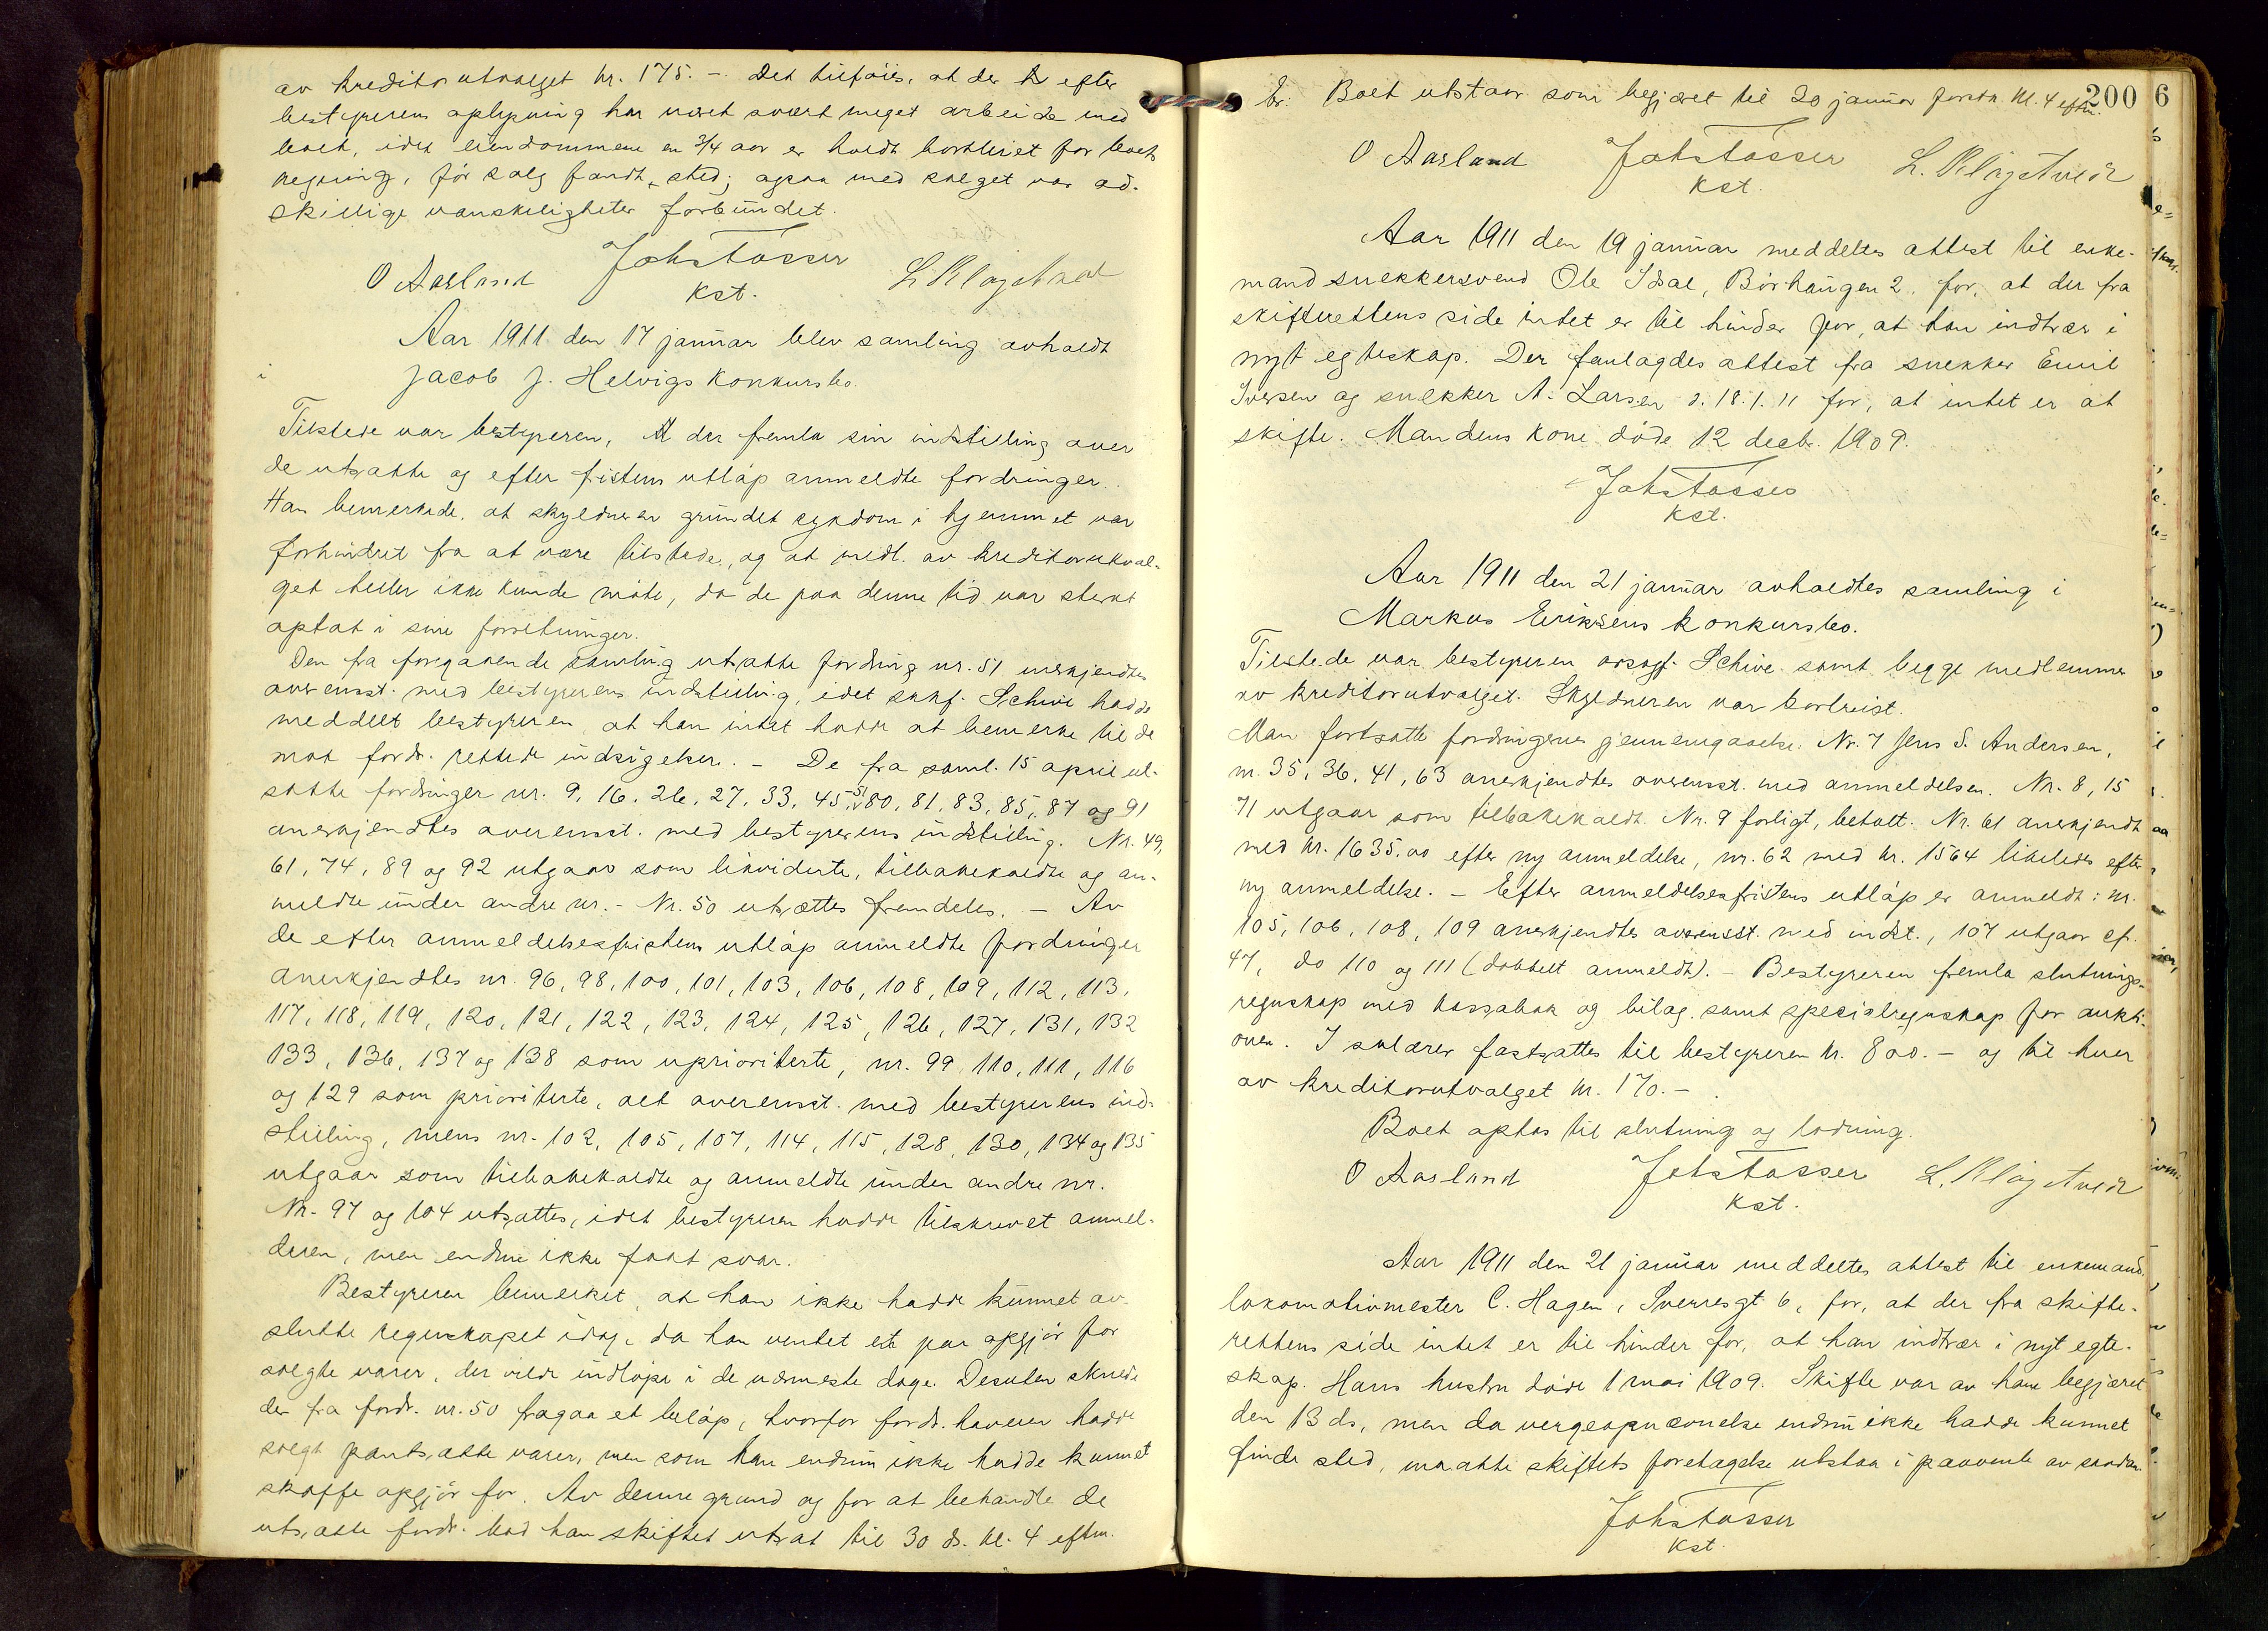 av kreditorutvalget kr. 175.- Det tilføies, at der efter
bestyrerens oplysning har været svært meget arbeide med
boet, idet eiendommene en 3/4 aar er holdt bortleiet for boets
regning, før salg fandt sted; ogsaa med salget var ad-
skillige vanskeligheter forbundet.
O Aasland Joh Tosser L. Klogetvedt
Kst.
Aar 1911 den 17 januar blev samling avholdt
i Jacob J. Helvigs konkursbo.
Tilstede var bestyreren, der fremla sin indstilling over
de utsatte og efter fristens utløp anmeldte fordringer.
Han bemerkede, at skyldneren grundet sykdom i hjemmet var
forhindret fra at være tilstede, og at medl. av kreditorutval-
get heller ikke kunde møte, da de paa denne tid var sterkt
optat i sine forretninger.
Den fra foregaaende samling utsatte fordring nr. 51 anerkjendtes
overensst. med bestyrerens indstilling, idet sakf. Schive hadde
meddelt bestyreren, at han intet hadde at bemerke til de
mot fordr. rettede indsigelser. - De fra saml. 15 april ut-
satte fordringer nr. 9, 16, 26, 27, 33, 45, 51, 80, 81, 83, 85, 87 og 91
anerkjendtes overensst. med bestyrerens indstilling. Nr. 49,
61, 74, 89 og 92 utgaar som likviderte, tilbakekaldte og an-
meldte under andre nr. - Nr. 50 utsættes fremdeles. - Av
de efter anmeldelsesfristens utløp anmeldte fordringer
anerkjendtes nr. 96, 98, 100, 101, 103, 106, 108, 109, 112, 113,
117, 118, 119, 120, 121, 122, 123, 124, 125, 126, 127, 131, 132
133, 136, 137 og 138 som uprioriterte, nr. 99, 110, 111, 116
og 129 som prioriterte, alt overensst. med bestyrerens ind-
stilling, mens nr. 102, 105, 107, 114, 115, 128, 130, 134 og 135
utgaar som tilbakekaldte og anmeldte under andre nr.
Nr. 97 og 104 utsattes, idet bestyreren hadde tilskrevet anmel-
deren, men endnu ikke faat svar.
Bestyreren bemerket, at han ikke hadde kunnet av-
slutte regnskapet idag, da han ventet et par opgjør for
solgte varer, der vilde indløpe i de nærmeste dage. Desuten skulde
der fra fordr. nr. 50 fragaa et beløp, hvorfor fordr. haveren hadde
solgt pantsatte varer, men som han endnu ikke hadde kunnet
skaffe opgjør for. Av denne grund og for at behandle de
utsatte fordr. bad han skiftet utsat til 30 ds. kl. 4 efterm.
200 6
Er: Boet utstaar som begjæret til 30 januar førstk. kl. 4 efm.
O Aasland Joh Tosser L. Klogetvedt
Kst.
Aar 1911 den 19 januar meddeltes attest til enke-
mand snekkersvend Ole Idsal, Børhaugen 2, for, at der fra
skifterettens side intet er til hinder for, at han indtrær i
nyt egteskap. Der fremlagdes attest fra snekker Emil
Iversen og snekker A. Larsen d. 18.1.11 for, at intet er at
skifte. Mandens kone døde 12 decbr. 1909.
Joh Tosser
Kst.
Aar 1911 den 21 januar avholdtes samling i
Markus Eriksens konkursbo.
Tilstede var bestyreren orsagf. Schive samt begge medlemmer
av kreditorutvalget. Skyldneren var bortreist.
Man fortsatte fordringernes gjennemgaaelse. Nr. 7 Jens S. Andersen,
nr. 35, 36, 41, 63 anerkjendtes overensst. med anmeldelsen. Nr. 8, 15
71 utgaar som tilbakekaldt. Nr. 9 forligt, betalt. Nr. 61 anerkjendt
med kr. 1635.00 efter ny anmeldelse, nr. 62 med kr. 1564 likeledes efter
ny anmeldelse. - Efter anmeldelsesfristens utløp er anmeldt: nr.
105, 106, 108, 109 anerkjendtes overensst. med indst., 107 utgaar cfr.
47, do 110 og 111 (dobbelt anmeldt). - Bestyreren fremla slutnings-
regnskap med kassabok og bilag, samt specialregnskap for aukti-
onen. I salærer fastsattes til bestyreren kr. 800.- og til hver
av kreditorutvalget kr. 170.-
Boet optas til slutning og lodning.
O Aasland Joh Tosser L. Klogetvedt
Kst.
Aar 1911 den 21 januar meddeltes attest til enkemand
lokomotivmester C. Hagen, Sverresgt 6, for, at der fra skifte-
rettens side intet er til hinder for, at han indtrær i nyt egte-
skap. Hans hustru døde 1 mai 1909. Skifte var av ham begjæret
den 13 ds, men da vergeopnævnelse endnu ikke hadde kunnet
finde sted, maatte skiftets foretagelse utstaa i paavente av saadan.
Joh Tosser
Kst.